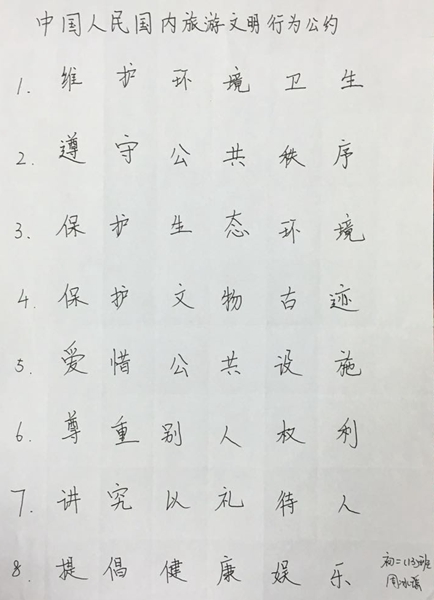 中国人民国内旅游文明行为公约
1. 维护环境卫生
2. 遵守公共秩序
3. 保护生态环境
4. 保护文物古迹
5. 爱惜公共设施
6. 尊重别人权利
7. 讲究以礼待人
8. 提倡健康娱乐
初二(13)班